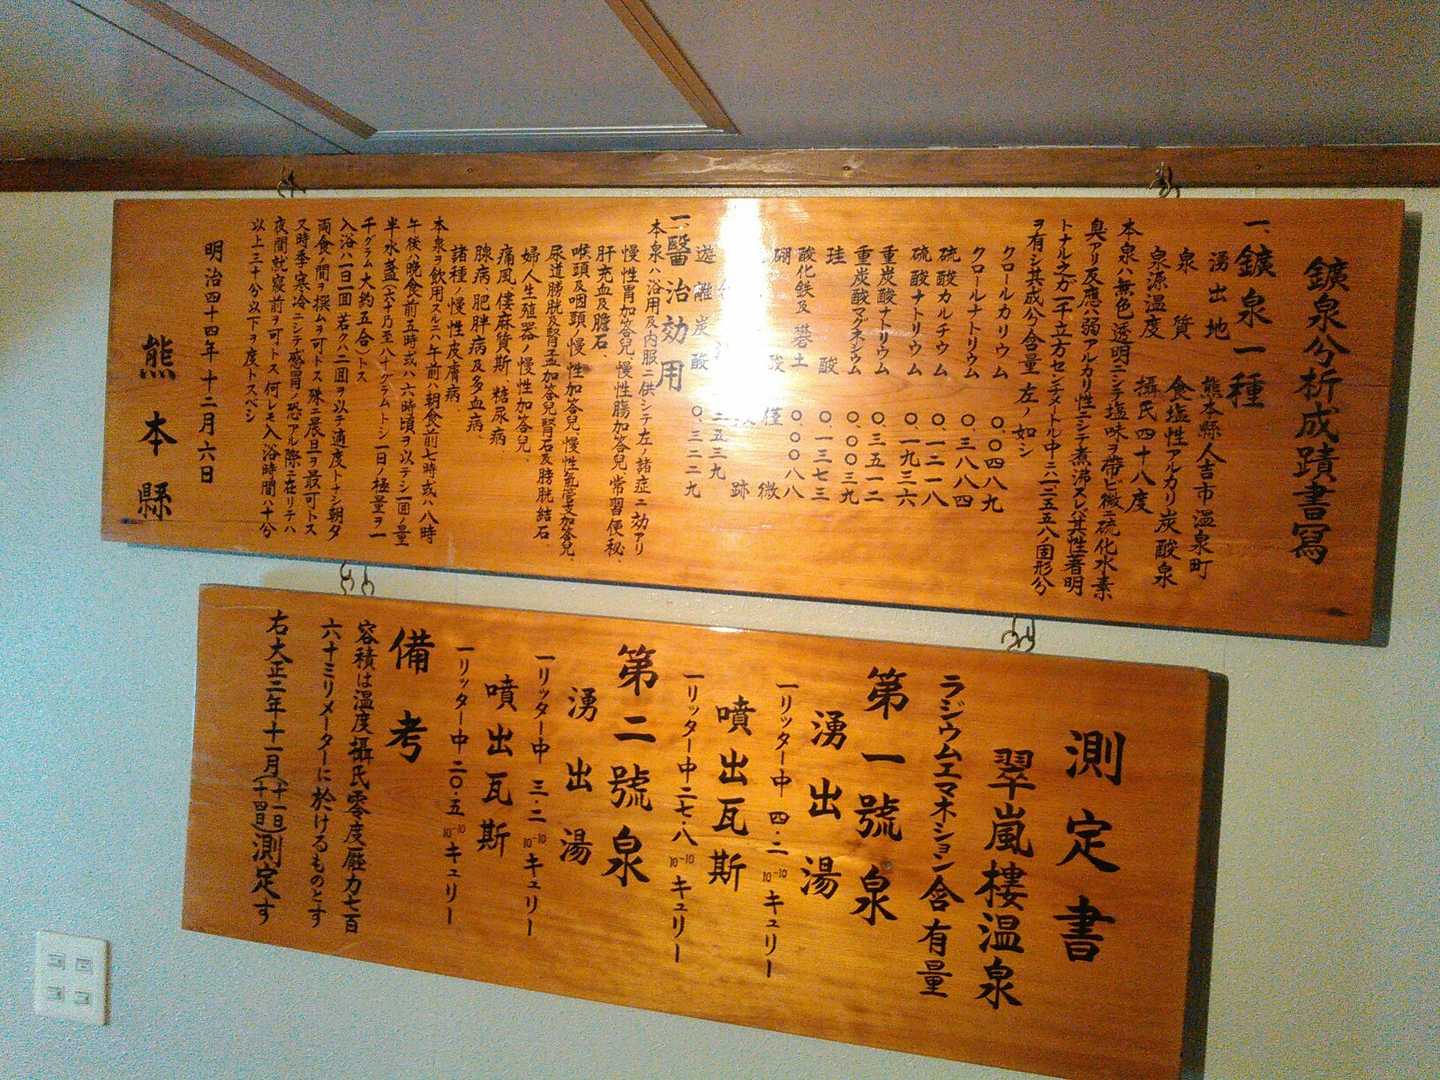 鑛泉分析成蹟書寫
一、鑛泉一種
湧出地 熊本縣人吉市温泉町
泉質 食塩性アルカリ炭酸泉
泉源温度 攝氏四十八度
本泉ハ無色透明ニシテ塩味ヲ帯ビ微ニ硫化水素
臭アリ反應ハ弱アルカリ性ニシテ煮沸スレバ其性著明
トナル之ガ一千立方センチメートル中ニハ二、二五五八固形分
ヲ有シ其成分含量左ノ如シ
クロールカリウム 〇、〇四八九
クロールナトリウム 〇、三八八四
硫酸カルチウム 〇、一二一八
硫酸ナトリウム 〇、一九三六
重炭酸ナトリウム 〇、三五一二
重炭酸マグネシウム 〇、〇〇三九
珪酸 〇、一三七三
酸化鉄及礬土 〇、〇〇八八
硼酸 僅微
跡
二五三九
遊離炭酸 〇、三二二九
一、醫治効用
本泉ハ浴用及内服ニ供シテ左ノ諸症ニ効アリ
慢性胃加答兒、慢性腸加答兒、常習便秘、
肝充血及膽石、
喉頭及咽頭ノ慢性加答兒、慢性氣管支加答兒、
尿道膀胱及腎盂加答兒、腎石及膀胱結石、
婦人生殖器ノ慢性加答兒、
痛風、僂麻質斯、糖尿病、
腺病、肥胖病及多血病、
諸種ノ慢性皮膚病、
本泉ヲ飲用スルニハ午前ハ朝食前七時或ハ八時
午後ハ晩食前五時或ハ六時頃ヲ以テシ一回ノ量
半水盞(六十乃至八十グラム)トシ一日ノ極量ヲ一
千グラム(大約五合)トス
入浴ハ一日一回若クハ二回ヲ以テ適度トシ朝夕
両食ノ間ヲ撰ムヲ可トス殊ニ晨旦ヲ最可トス
又時季寒冷ニシテ感冒ノ恐アル際ニ在リテハ
夜間就寝前ヲ可トス何レモ入浴時間ハ十分
以上三十分以下ヲ度トスベシ
明治四十四年十二月六日
熊本縣
測定書
翠嵐樓温泉
ラジウムエマネション含有量
第一號泉
湧出湯
一リッター中 四・二 10-10 キュリー
噴出瓦斯
一リッター中 二七・八 10-10 キュリー
第二號泉
湧出湯
一リッター中 三・二 10-10 キュリー
噴出瓦斯
一リッター中 二〇・五 10-10 キュリー
備考
容積は温度攝氏零度壓力七百
六十ミリメーターに於けるものとす
右大正三年十一月(十一日十四日)測定す